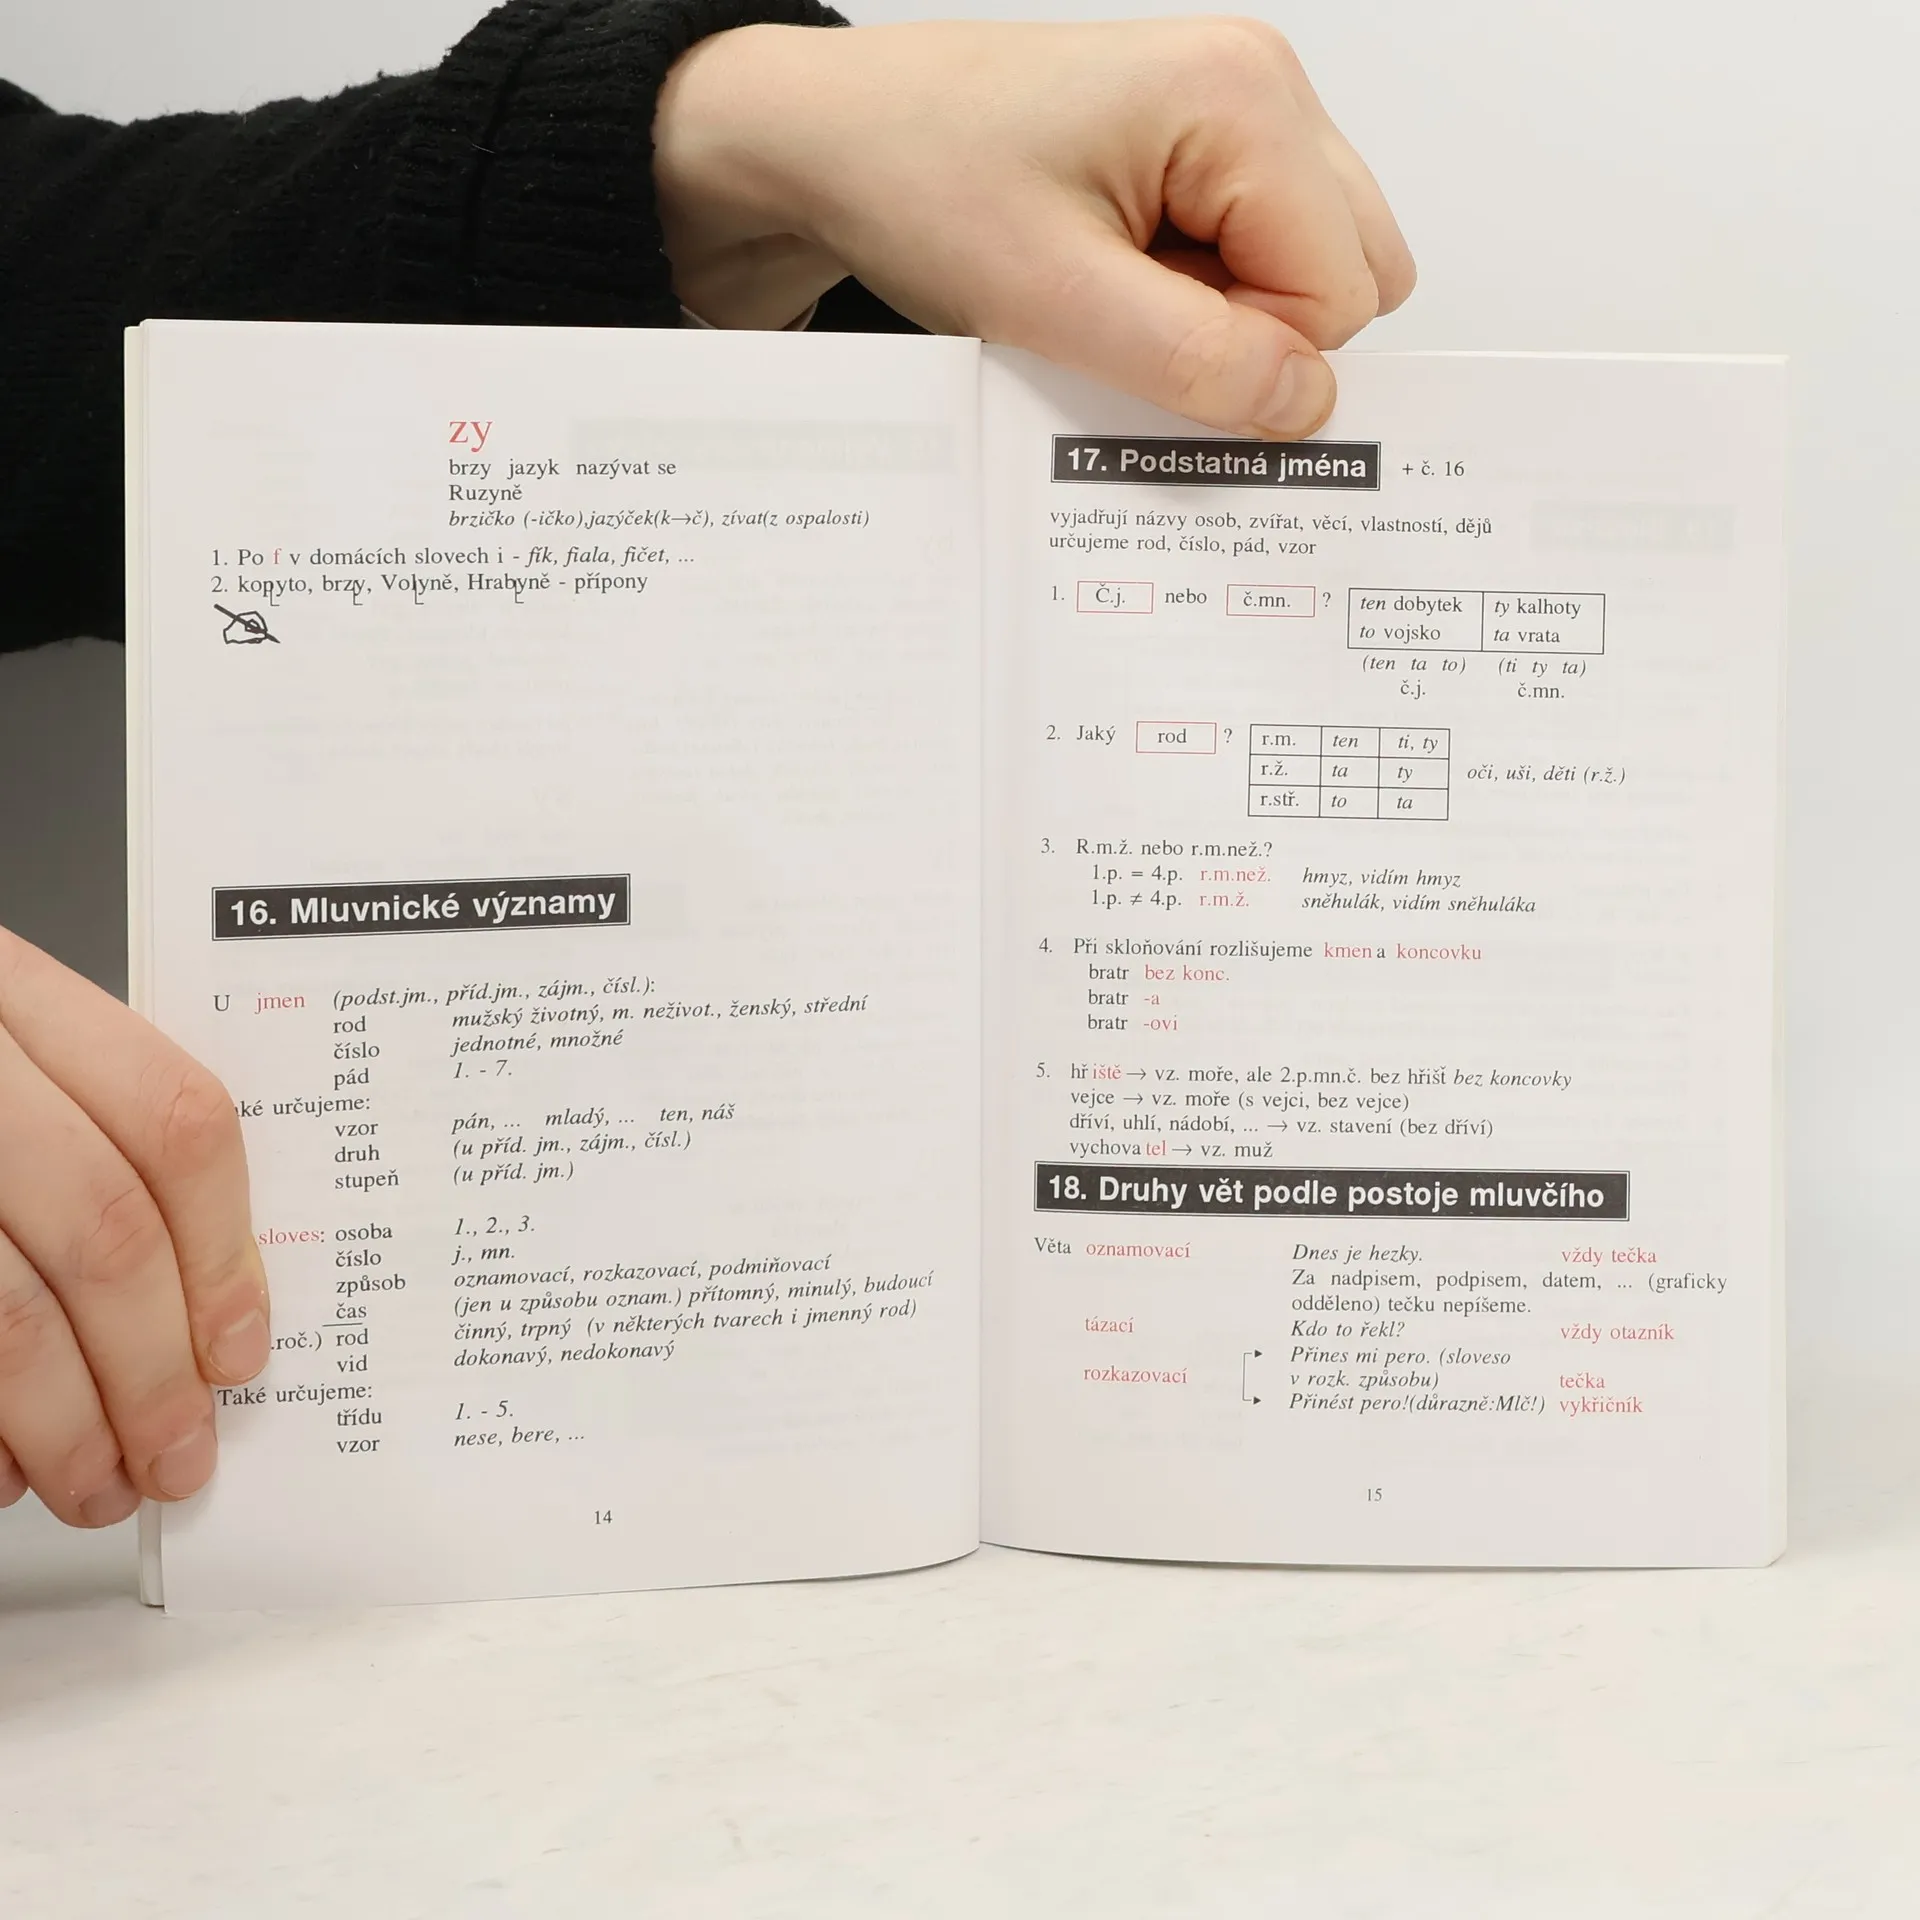 zy
brzy jazyk nazývat se
Ruzyně
brzičko (-ičko),jazýček(k→č), zívat(z ospalosti)
1. Po f v domácích slovech i - fík, fiala, fičet, ...
2. kopyto, brzy, Volyně, Hrabyně - přípony
16. Mluvnické významy
U jmen (podst.jm., příd.jm., zájm., čísl.):
rod mužský životný, m. neživot., ženský, střední
číslo jednotné, množné
pád 1. - 7.
ké určujeme:
vzor pán, ... mladý, ... ten, náš
druh (u příd. jm., zájm., čísl.)
stupeň (u příd. jm.)
sloves: osoba 1., 2., 3.
číslo j., mn.
způsob oznamovací, rozkazovací, podmiňovací
čas (jen u způsobu oznam.) přítomný, minulý, budoucí
.roč.) rod činný, trpný (v některých tvarech i jmenný rod)
vid dokonavý, nedokonavý
Také určujeme:
třídu 1. - 5.
vzor nese, bere, ...
14
17. Podstatná jména + č. 16
vyjadřují názvy osob, zvířat, věcí, vlastností, dějů
určujeme rod, číslo, pád, vzor
1. Č.j. nebo č.mn. ? ten dobytek ty kalhoty
to vojsko ta vrata
(ten ta to) (ti ty ta)
č.j. č.mn.
2. Jaký rod ? r.m. ten ti, ty
r.ž. ta ty oči, uši, děti (r.ž.)
r.stř. to ta
3. R.m.ž. nebo r.m.než.?
1.p. = 4.p. r.m.než. hmyz, vidím hmyz
1.p. ≠ 4.p. r.m.ž. sněhulák, vidím sněhuláka
4. Při skloňování rozlišujeme kmen a koncovku
bratr bez konc.
bratr -a
bratr -ovi
5. hřiště → vz. moře, ale 2.p.mn.č. bez hřišť bez koncovky
vejce → vz. moře (s vejci, bez vejce)
dříví, uhlí, nádobí, ... → vz. stavení (bez dříví)
vychovatel → vz. muž
18. Druhy vět podle postoje mluvčího
Věta oznamovací Dnes je hezky. vždy tečka
Za nadpisem, podpisem, datem, ... (graficky
odděleno) tečku nepíšeme.
tázací Kdo to řekl? vždy otazník
Přines mi pero. (sloveso
rozkazovací v rozk. způsobu) tečka
Přinést pero!(důrazně:Mlč!) vykřičník
15